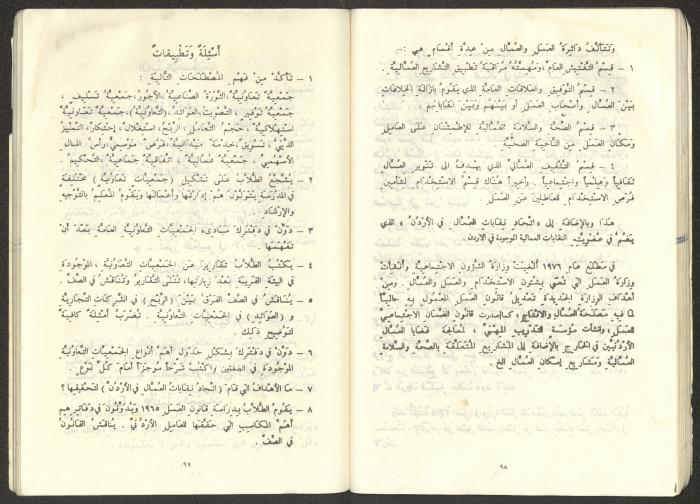 وتتألف دائرة العمل والعمال من عدة أقسام هي :-
١ - قسم التفتيش العام ، ومهمته مراقبة تطبيق التشاريع العمالية .
٢ - قسم التوفيق والعلاقات العامة الذي يقوم بازالة الخلافات
بين العمال وأصحاب العمل أو بينهم وبين نقاباتهم .
٣ - قسم الصحة والسلامة العمالية للإطمئنان على العامل
ومكان العمل من الناحية الصحية .
٤ - قسم التثقيف العمالي الذي يهدف الى تنوير العمال
ثقافيا وعلميا واجتماعيا . وأخيرا هناك قسم الاستخدام لتأمين
فرص الاستخدام للعاطلين عن العمل .
هذا وبالإضافة إلى « اتحاد نقابات العمال في الأردن » الذي
يضم في عضويته النقابات العمالية الموجودة في الاردن .
في مطلع عام ١٩٧٦ ألغيت وزارة الشؤون الاجتماعية وأنشأت
وزارة العمل التي تعنى بشئون الاستخدام والعمل والعمال . ومن
أهداف الوزارة الجديدة تعديل قانون العمل المعمول به حاليا
لما فيه مصلحة العمال والانتاج ، كما أصدرت قانون الضمان الاجتماعي
للعمل ، وانشأت مؤسسة التدريب المهني ، لمعالجة قضايا العمال
الأردنيين في الخارج بالإضافة إلى المشاريع المتعلقة بالصحة والسلامة
العمالية ومشاريع إسكان العمال الخ .
٩٨
أسئلة وتطبيقات
١ - تأكد من فهم المصطلحات التالية :
جمعية تعاونية ، الثورة الصناعية ، الأجور ، جمعية تسليف ،
جمعية توفير ، التصويت ، العوائد ، (التعاونية) ، جمعية تعاونية
استهلاكية ، حجم التعامل ، الربح ، استغلال ، إحتكار ، التمييز
الديني ، تسويق ، خدمة ميدانية ، قرض موسمي ، رأس المال
الأسهمي ، جمعية عمالية ، اتفاقية جماعية ، التحكيم .
٢ - يشجع الطلاب على تشكيل (جمعيات تعاونية) مختلفة
في المدرسة يتولون هم إدارتها وأعمالها ويقوم المعلم بالتوجيه
والإرشاد
٣ - دون في دفترك مبادىء الجمعيات التعاونية العامة بعد أن
تفهمها .
٤ - يكتب الطلاب تقارير عن الجمعيات التعاونية الموجودة
في البيئة القريبة بعد زيارتها ، تتلى التقارير وتناقش في الصف .
٥ - يناقش في الصف الفرق بين (الربح) في الشركات التجارية
و (العوائد) في الجمعيات التعاونية . تضرب أمثلة كافية
لتوضيح ذلك
٦ - دون في دفترك بشكل جدول أهم أنواع الجمعيات التعاونية
الموجودة في الضفتين واكتب شرحا موجزا أمام كل نوع .
٧ - ما الأهداف التي قام (اتحاد نقابات العمال في الأردن) لتحقيقها ؟
٨ - يقوم الطلاب بدراسة قانون العمل ١٩٦٥ ويدونون في دفاترهم
أهم المكاسب التي حققها للعامل الأردني . يناقش القانون
في الصف .
٩٩